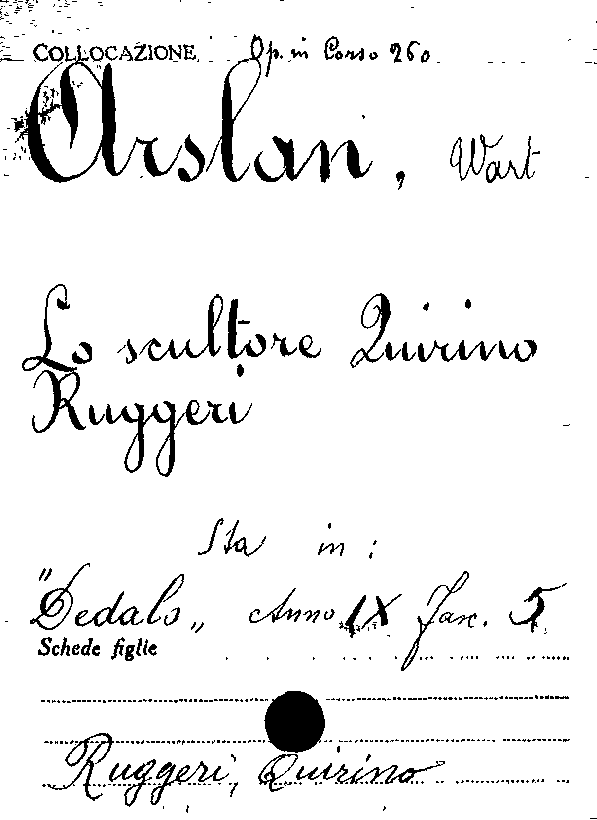 COLLOCAZIONE Op. in Corso 260
Arslan, Wart
Lo scultore Quirino
Ruggeri
Sta in:
"Dedalo„ Anno IX Fasc. 5
Schede figlie
Ruggeri, Quirino